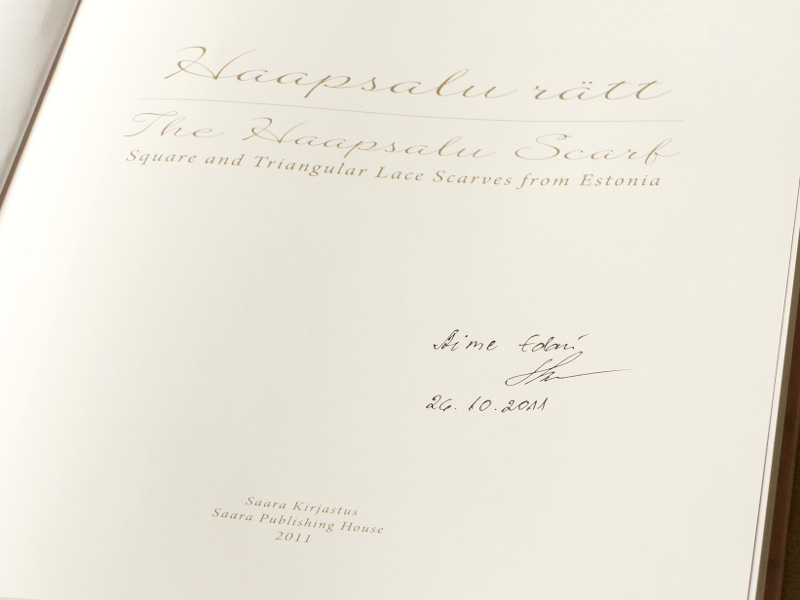 Haapsalu rätt
The Haapsalu Scarf
Square and Triangular Lace Scarves from Estonia
Aime Edasi
26.10.2011
Saara Kirjastus
Saara Publishing House
2011